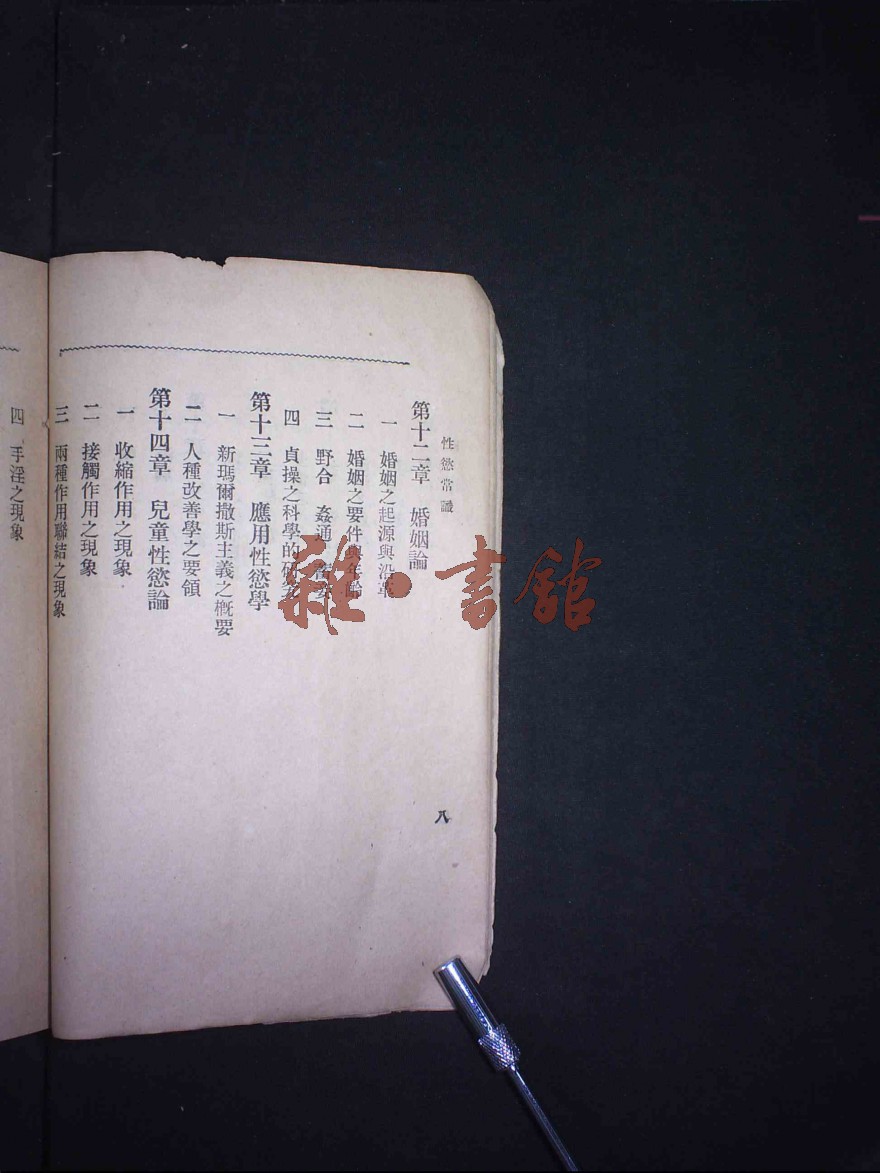 性慾常識
第十二章 婚姻論
一 婚姻之起源與沿革
二 婚姻之要件與年齡
三 野合 姦通
四 貞操之科學的研究
第十三章 應用性慾學
一 新瑪爾撒斯主義之概要
二 人種改善學之要領
第十四章 兒童性慾論
一 收縮作用之現象
二 接觸作用之現象
三 兩種作用聯結之現象
八
四 手淫之現象
雜·書館